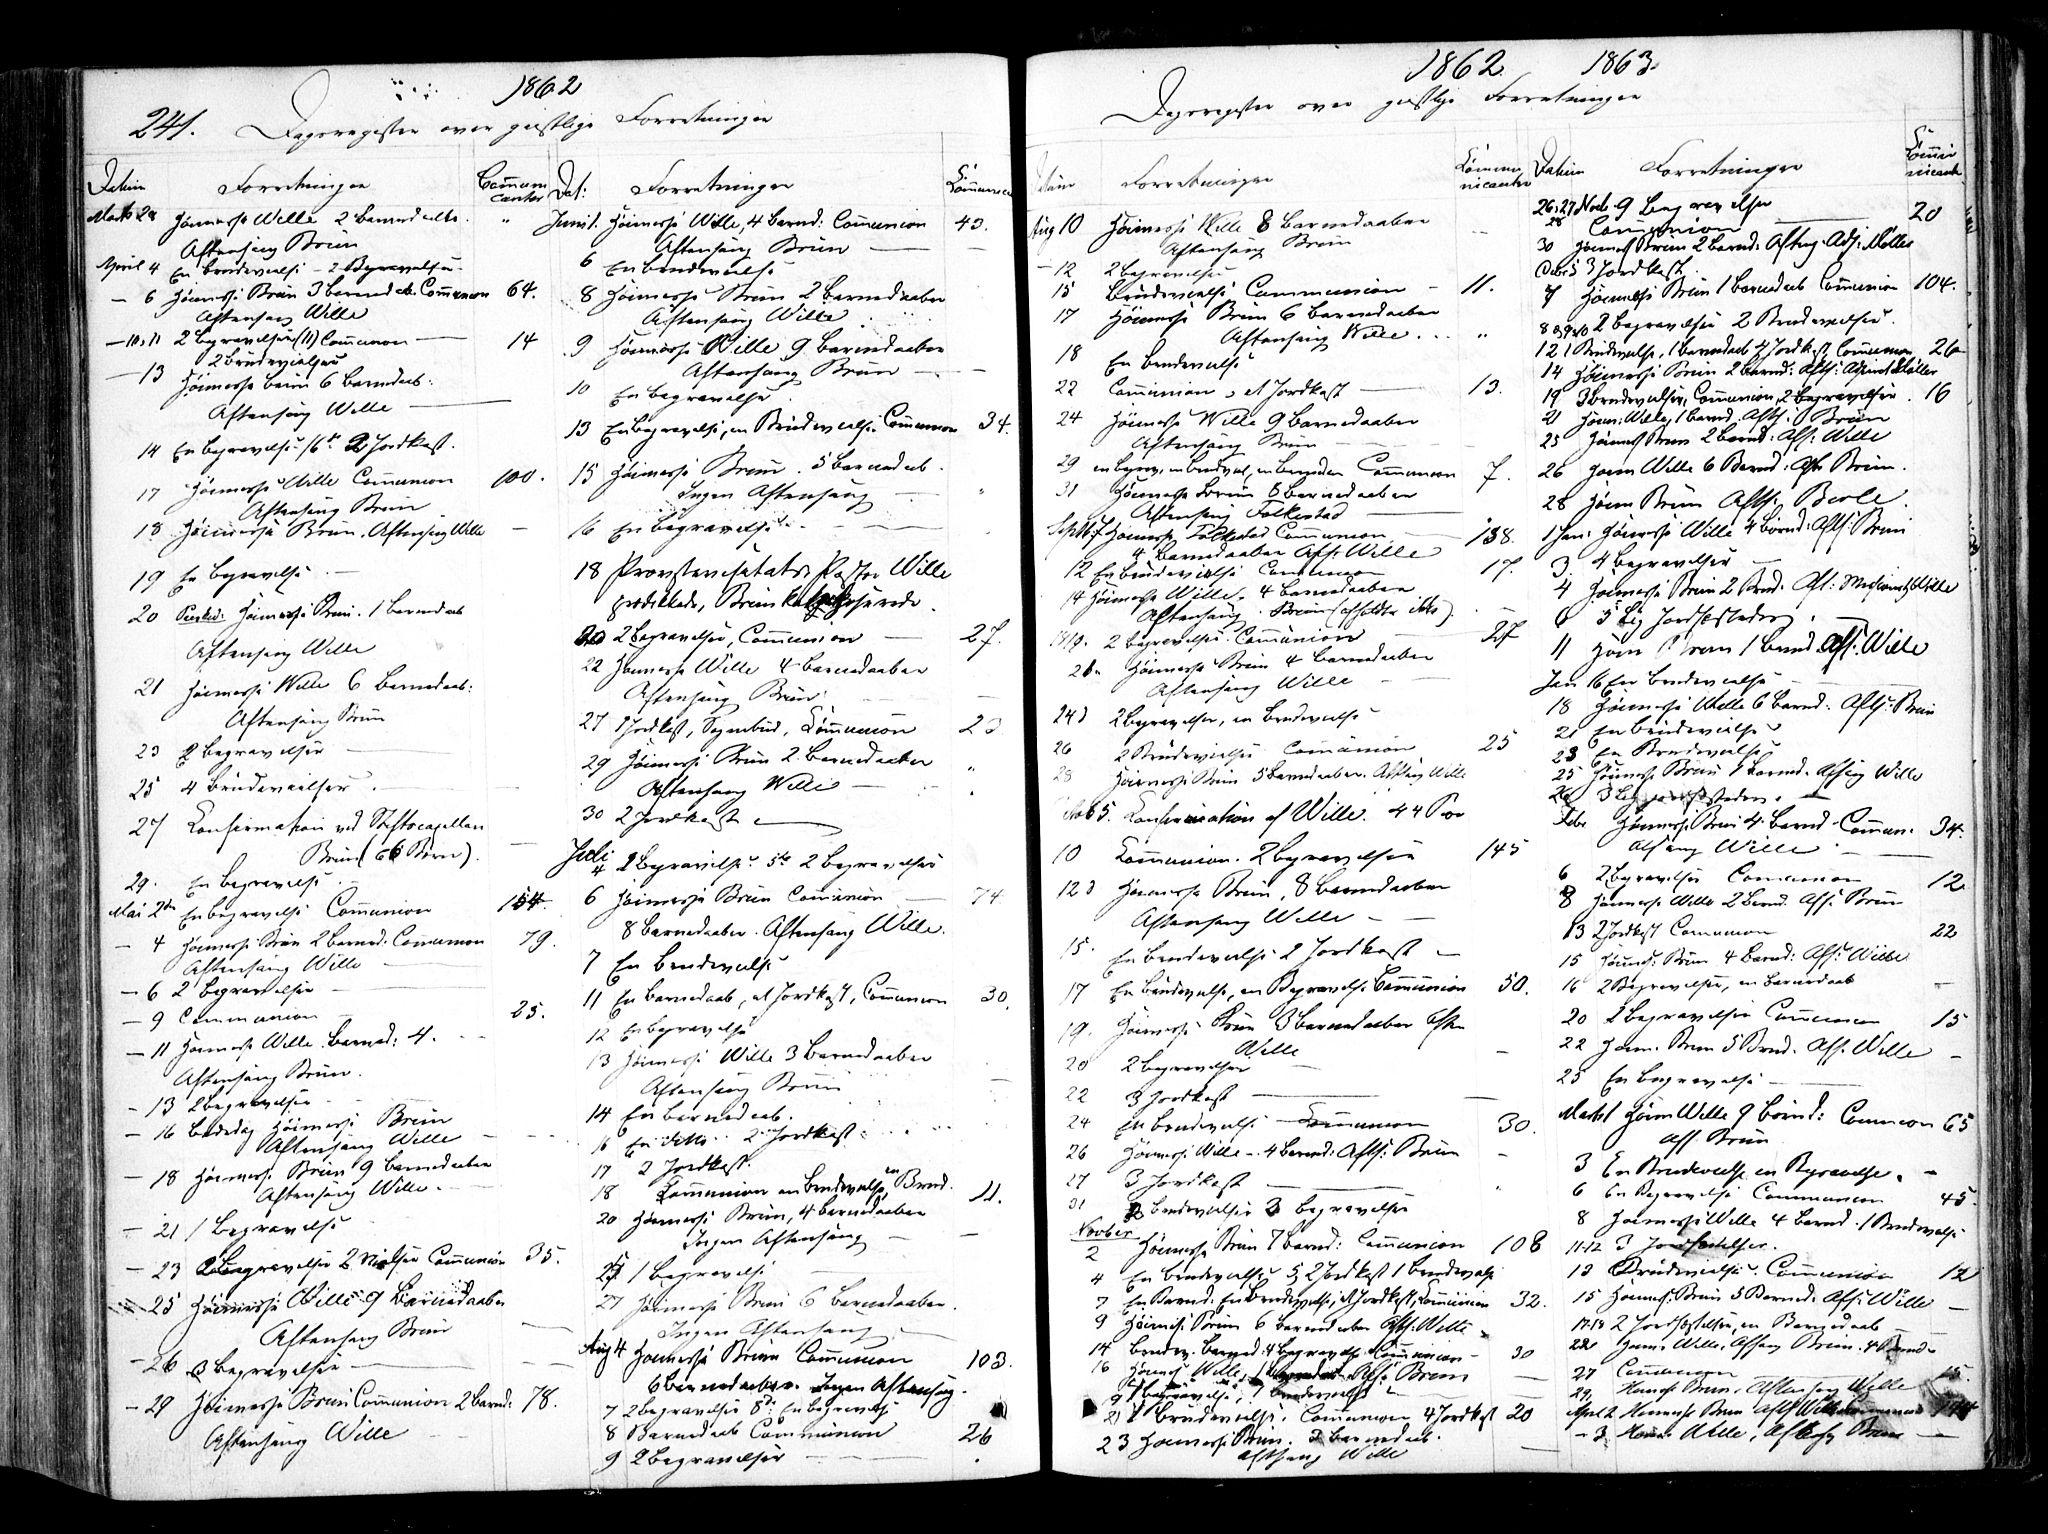 1862
241. Dagsregister over geistlige Forretninger
Datum Forretninger Communicanter
Marts 28 Høimesse Wille 2 Barnedaabe. "
Aftensang Brun
April 4 En Brudevielse – 2 Begravelser
– 6 Høimesse Brun 3 Barned. Communion 64.
Aftensang Wille
– 10, 11 2 Begravelser (11) Communion 14
2 Brudevielser
– 13 Høimesse Brun 6 Barnedaab:
Aftensang Wille
14 En Begravelse 16de 2 Jordkast.
17 Høimesse Wille Communion 100.
Aftensang Brun
18 Høimesse Brun, Aftensang Wille –
19 En Begravelse
20 Paasked: Høimesse Brun. 1 Barnedaab
Aftensang Wille
21 Høimesse Wille 6 Barnedaab:
Aftensang Brun
23 2 Begravelser
25 4 Brudevielser
27 Konfirmation ved Stiftscapellan
Brun (66 Børn).
29. En Begravelse
Mai 2den En Begravelse Communion 154.
– 4 Høimesse Brun 2 Barned: Communion 79.
Aftensang Wille
– 6 2 Begravelser
– 9 Communion 25.
– 11 Høimesse Wille. Barned: 4.
Aftensang Brun.
– 13 2 Begravelser
– 16 Bededag Høimesse Brun
Aftensang Wille
– 18 Høimesse Brun 9 Barnedaabe
Aftensang Wille.
– 21 1 Begravelse
– 23 2 Begravelser 2 Vielser Communion 35.
– 25 Høimesse Wille 9 Barnedaabe
Aftensang Brun
– 26 3 Begravelser
– 29 Høimesse Brun Communion 2 Barnd: 78.
Aftensang Wille
Dat: Forretninger Communica
Juni 1. Høimesse Wille, 4 Barnd: Communion 43.
Aftensang Brun
6 En Brudevielse
8 Høimesse Brun 2 Barnedaabe
Aftensang Wille
9 Høimesse Wille 9 Barnedaabe
Aftensang Brun
10 En Begravelse
13 En Begravelse, en Brudevielse Communion 34.
15 Høimesse Brun. 5 Barnedaab.
Ingen Aftensang
16 En Begravelse
18 Provstevisitats. Pastor Wille
prædikede, Brun katechiserede.
20 2 Begravelser, Communion 27.
22 Høimesse Wille 4 Barnedaabe
Aftensang Brun
27 1 Jordkast, Sognebud, Communion 23
29 Høimesse Brun 2 Barnedaabe
Aftensang Wille
30 2 Jordkast
Juli
4 2 Begravelser 5te 2 Begravelser
6 Høimesse Brun Communion 74
8 Barnedaabe. Aftensang Wille.
7 En Brudevielse
11 En Barnedaab, et Jordkast, Communion 30.
12 En Begravelse
13 Høimesse Wille 3 Barnedaabe
Aftensang Brun
14 En Barnedaab.
16 En ditto 2 Jordkast
17 2 Jordkast.
18 Communion en Brudevielse en Barnd. 11.
20 Høimesse Brun, 4 Barnedaabe
Ingen Aftensang
25 1 Begravelse
27 Høimesse Brun 6 Barnedaabe.
Ingen Aftensang
Aug 4 Høimesse Brun Communion 103.
6 Barnedaabe. Ingen Aftensang.
7 2 Begravelser 8de En Begravelse
8 Barnedaab Communion 26
9 2 Begravelser
1862 1863.
Dagsregister over geistlige Forretninger
Datum Forretninger Kommunicanter
Aug 10 Høimesse Wille 8 Barnedaabe
Aftensang Brun
– 12 2 Begravelser
15 Brudevielse Communion 11.
17 Høimesse Brun 6 Barnedaabe
Aftensang Wille
18 En Brudevielse
22 Communion, et Jordkast 13.
24 Høimesse Wille 9 Barnedaabe
Aftensang Brun
29 en Begrav, en Brudeviel, en Barnedaab Communion 7.
31 Høimesse Brun 8 Barnedaabe
Aftensang Folkestad
Septb 7 Høimesse Folkestad Communion 138.
4 Barnedaabe Aft. Wille
12 En Brudevielse Communion 17.
14 Høimesse Wille. 4 Barnedaabe
Aftensang Brun (afholdtes ikke).
18,19. 2 Begravelser. Communion 27
21. Høimesse Brun 4 Barnedaabe
Aftensang Wille
24 2 Begravelser, en Brudevielse
26 2 Brudevielser Communion 25
28 Høimesse Brun 5 Barnedaabe. Aftsang Wille
Octob 5. Konfirmation af Wille. 44 Par
10 Communion. 2 Begravelser 145
12 Høimesse Brun, 8 Barnedaabe
Aftensang Wille
15. En Brudevielse 2 Jordkast
17 En Brudevielse, en Begravelse Communion 50.
19. Høimesse Brun 3 Barnedaabe Aften
Wille
20 2 Begravelser
22 3 Jordkast
24 En Brudevielse Communion 30.
26 Høimesse Wille – 4 Barnd: Afts: Brun
27 3 Jordkast
31 2 Brudevielser 3 Begravelser
Novber
2 Høimesse Brun 7 Barnd: Communion 108
4 En Brudevielse 5 2 Jordkast 1 Brudevielse
7 En Barned: En Brudevielse, et Jordkast, Communion 32.
9 Høimes: Brun 6 Barnedaabe Afts: Wille
14 Brudev. Barned: 4 Begravelse Communion – 30
16 Høimes: Wille, Afts: Brun
9 1 Begravelse, 1 Brudevielse
21 1 Brudevielse, Communion 4 Jordkast 20
23 Høimesse Brun. 3 Barnedaab.
Aftsang Wille
Datum Forretninger Kommunicante
26, 27 Novb. 9 Begravelser
28 Communion 20
30 Høimes: Brun 2 Barnd: Aftsg. Adj: Møller
Decb 5 3 Jordkast
7 Høimesse Brun 1 Barnedaab Communion 104.
8, 9, 10 2 Begravelser 2 Brudevielser.
12 1 Brudevielse, 1 Barnedaab 4 Jordkast, Communion 26
14 Høimesse Brun 2 Barnd: Afts: Adjunct Møller
19 3 Brudevielser, Communion, 2 Begravelser. 16
21 Høim: Wille, 1 Barnd. Afts: Brun
25 Høimes: Brun 2 Barnd: Afts: Wille
26 Høim Wille 6 Barnd: Aft Brun.
28 Høim Brun Afts:
1 Jan: Høimesse Wille 4 Barnd: Afts: Brun
3 4 Begravelser
4 Høimesse Brun 2 Brnd. Aft: Wille
6 5
11 Høim Brun 1 Barnd. Aft: Wille
Jan 16 En Brudevielse
18 Høimesse Wille 6 Barnd: Afts: Brun
21 En Brudevielse
23 En Brudevielse
25 Høimesse Brun 1 Barned. Aftsang Wille
26 3
Febr Høimesse Brun 4 Barnd – Commun. 34.
Aftsang Wille
6 2 Begravelser Communion 12
8 Høimesse Wille 2 Barnd. Afts: Brun
13 2 Jordkast Communion 22
15 Høimes: Brun 4 Barnd: Afts: Wille
16 2 Begravelser, en Barnedaab
20 2 Begravelser Communion 15
22 Høim. Brun 5 Barnd. Aft. Wille
25 En Begravelse
Marts 1 Høim Wille 9 Barnd: Communion 65
Aft Brun
3 En Brudevielse en Begravelse.
6 En Begravelse Communion 45.
8 Høimesse Wille 4 Barnd. 1 Brudevielse
11–12 3 Jordfæstelser.
13 Brudevielse. Communion 12
15 Høimes: Brun 5 Barned. Afts: Wille
17–19 2 Jordfæstelser, en Barnedaab
22 Høim: Wille, Aftsang Brun. 4 Barnd
27 Communion 15.
29 Høimes Brun. Aftensang Wille
April 2 Høimesse Brun Afts Wille Communion
– 3 Høimes Wille, Aftsang Brun